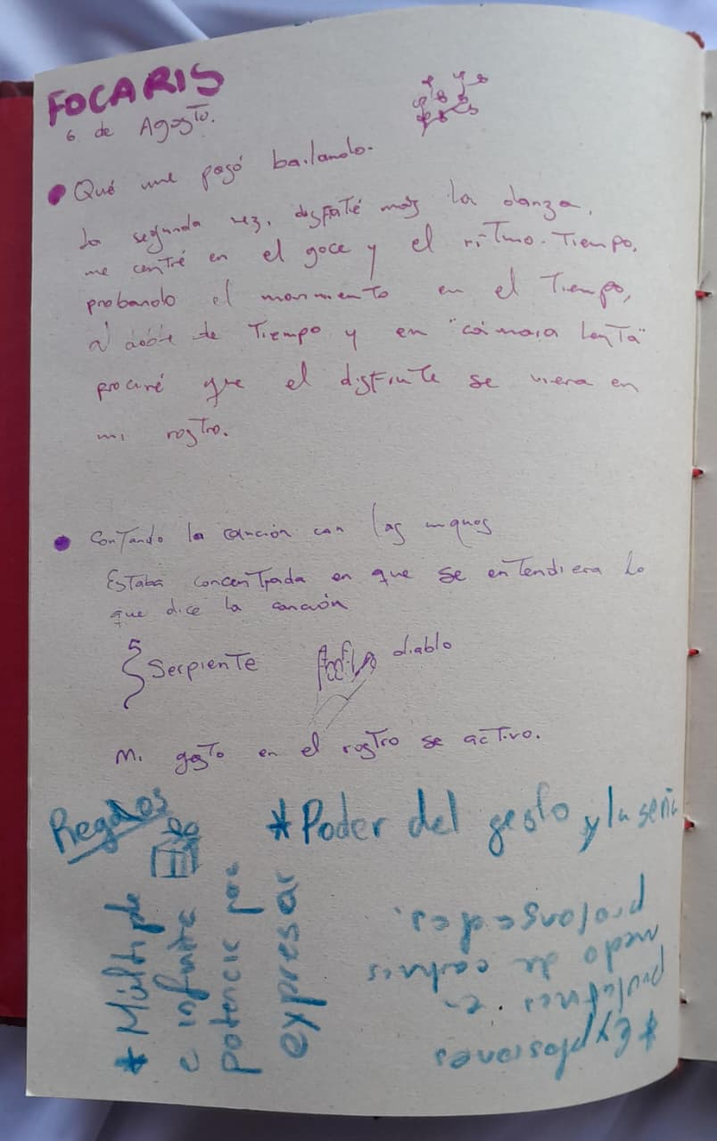 FOCARIS
6 de Agosto.
Qué me pasó bailando.
La segunda vez, disfruté más la danza,
me centré en el goce y el ritmo. Tiempo,
probando el movimiento en el Tiempo,
al doble de Tiempo y en "cámara lenta"
procuré que el disfrute se viera en
mi rostro.
Contando la canción con las manos
Estaba concentrada en que se entendiera lo
que dice la canción
Serpiente
diablo
Mi gesto en el rostro se activo.
Regalos
* Poder del gesto y la seña
* Múltiple
e infinita
potencia por
expresar
* Explosiones
en
medio de
prolongadas.